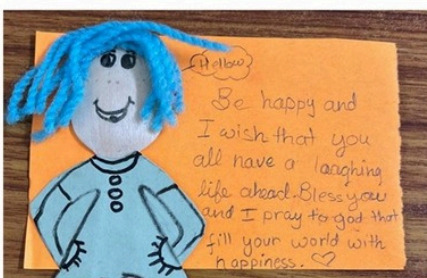 Hellow
Be happy and
I wish that you
all have a laughing
life ahead. Bless you
and I pray to god that
fill your world with
happiness. ♡